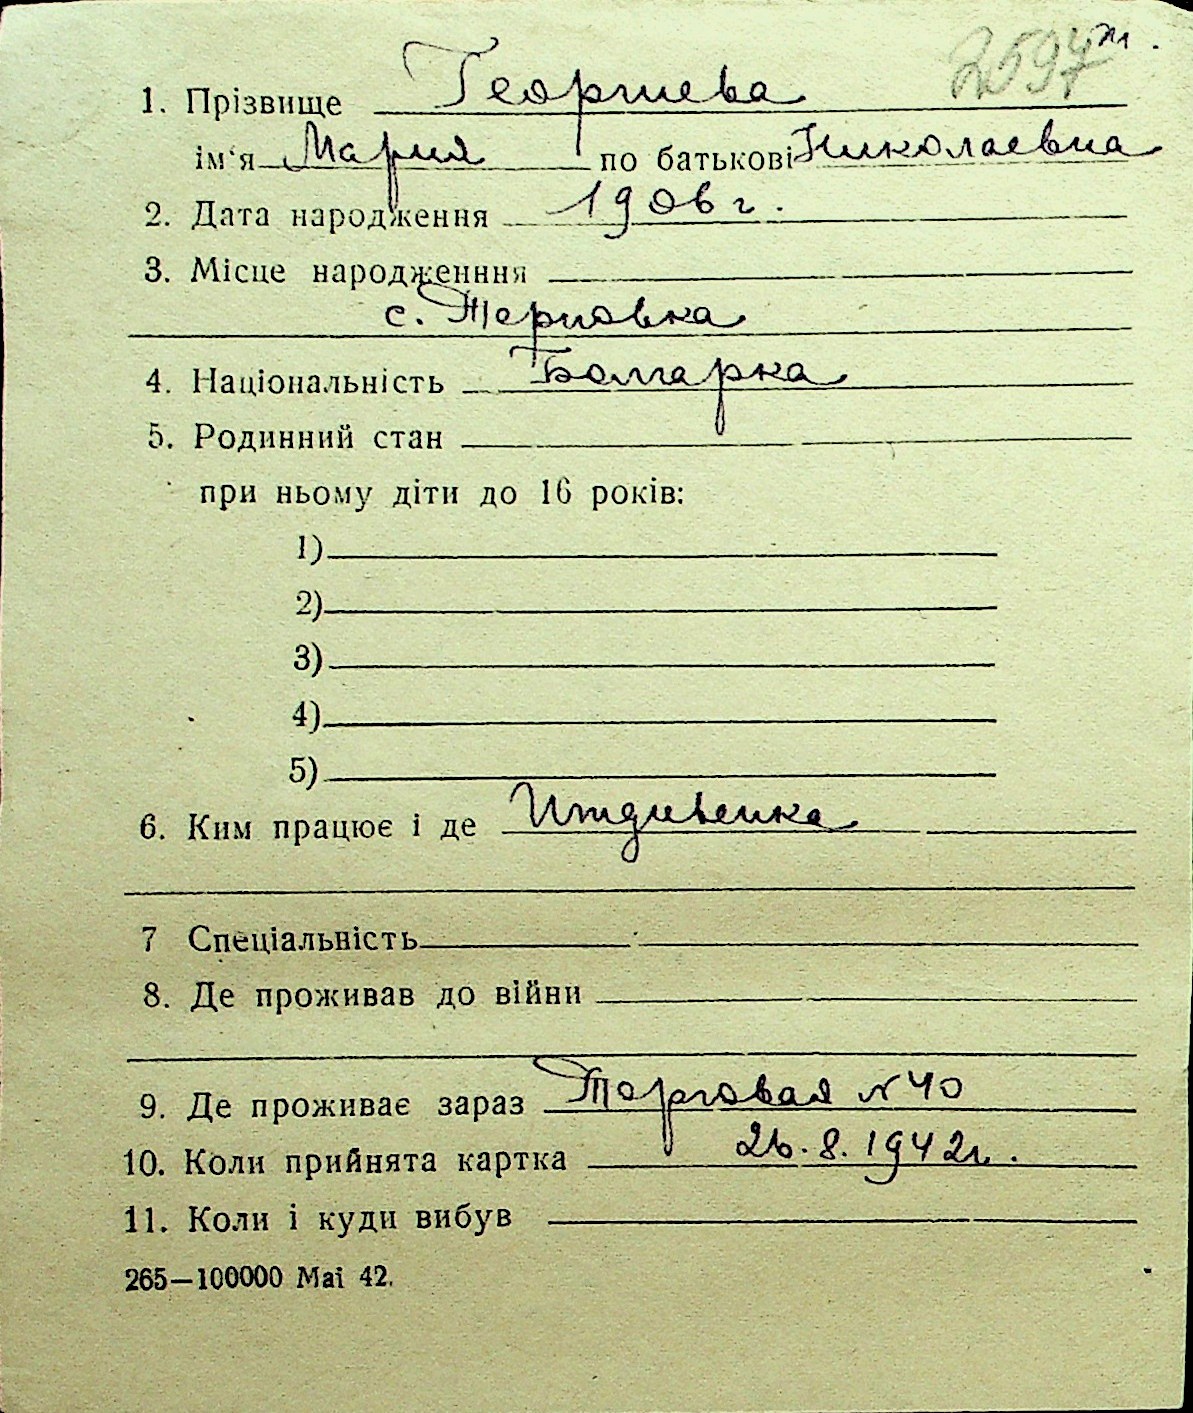 2597 м.
1. Прізвище Георгиева
ім'я Мария по батькові Николаевна
2. Дата народження 1906 г.
3. Місце народженння
с. Терновка
4. Національність Болгарка
5. Родинний стан
при ньому діти до 16 років:
1)
2)
3)
4)
5)
6. Ким працює і де Иждивенка
7 Спеціальність
8. Де проживав до війни
9. Де проживає зараз Торговая № 40
10. Коли прийнята картка 26.8.1942г.
11. Коли і куди вибув
265—100000 Mai 42.